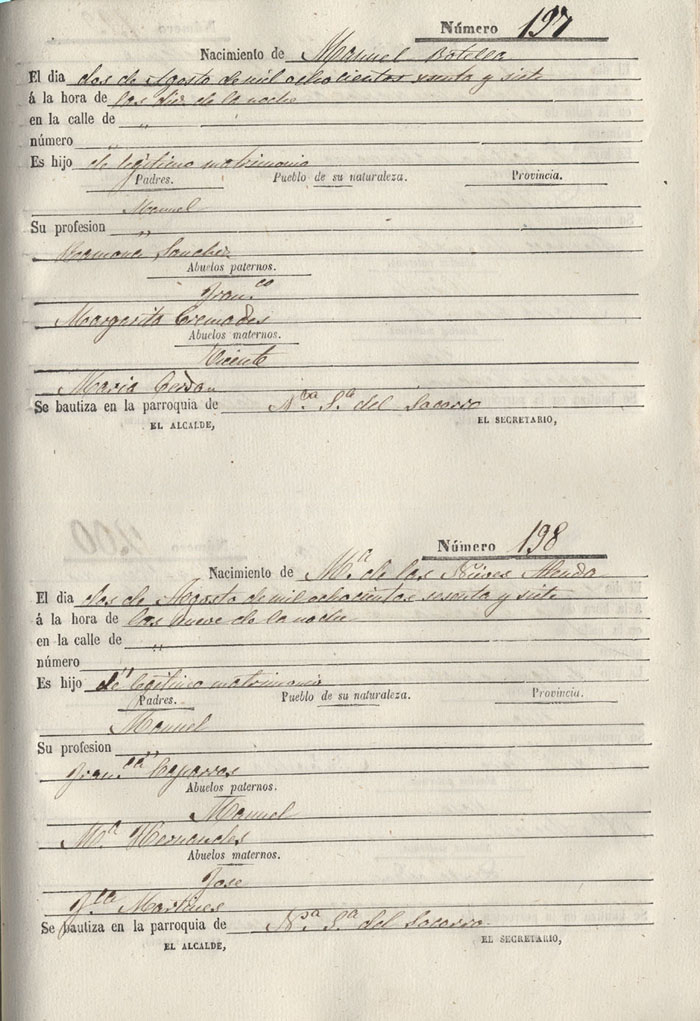 Número 197
Nacimiento de Manuel Botella
El dia dos de Agosto de mil ochocientos senta y siete
á la hora de las diez de la noche
en la calle de "
número "
Es hijo de legitimo matrimonio
Padres. Pueblo de su naturaleza. Provincia.
Manuel
Su profesion "
Ramona Sanchez
Abuelos paternos.
Fran.co
Margarita Cremades
Abuelos maternos.
Vicente
Maria Cerdan
Se bautiza en la parroquia de N.ra S.a del Socorro
EL ALCALDE, EL SECRETARIO,
Número 198
Nacimiento de M.a de las Nieves
El dia dos de Agosto de mil ochocientos sesenta y siete
á la hora de las nueve de la noche
en la calle de "
número "
Es hijo de legitimo matrimonio
Padres. Pueblo de su naturaleza. Provincia.
Manuel
Su profesion "
Fran.ca Caparros
Abuelos paternos.
Manuel
M.a Hernandes
Abuelos maternos.
Jose
F.ca Martines
Se bautiza en la parroquia de N.a S.a del Socorro
EL ALCALDE, EL SECRETARIO,